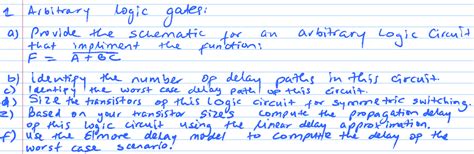 1 Arbitrary Logic gates:
a) Provide the schematic for an arbitrary Logic Circuit
that impliment the function:
F = A+BC
b) identify the number of delay paths in this circuit.
c) Identify the worst case delay path of this circuit.
d) Size the transistors of this Logic circuit for symmetric switching.
e) Based on your transistor sizes compute the propagation delay
of this logic circuit using the linear delay approximation.
f) use the Elmore delay model to compute the delay of the
worst case scenario.